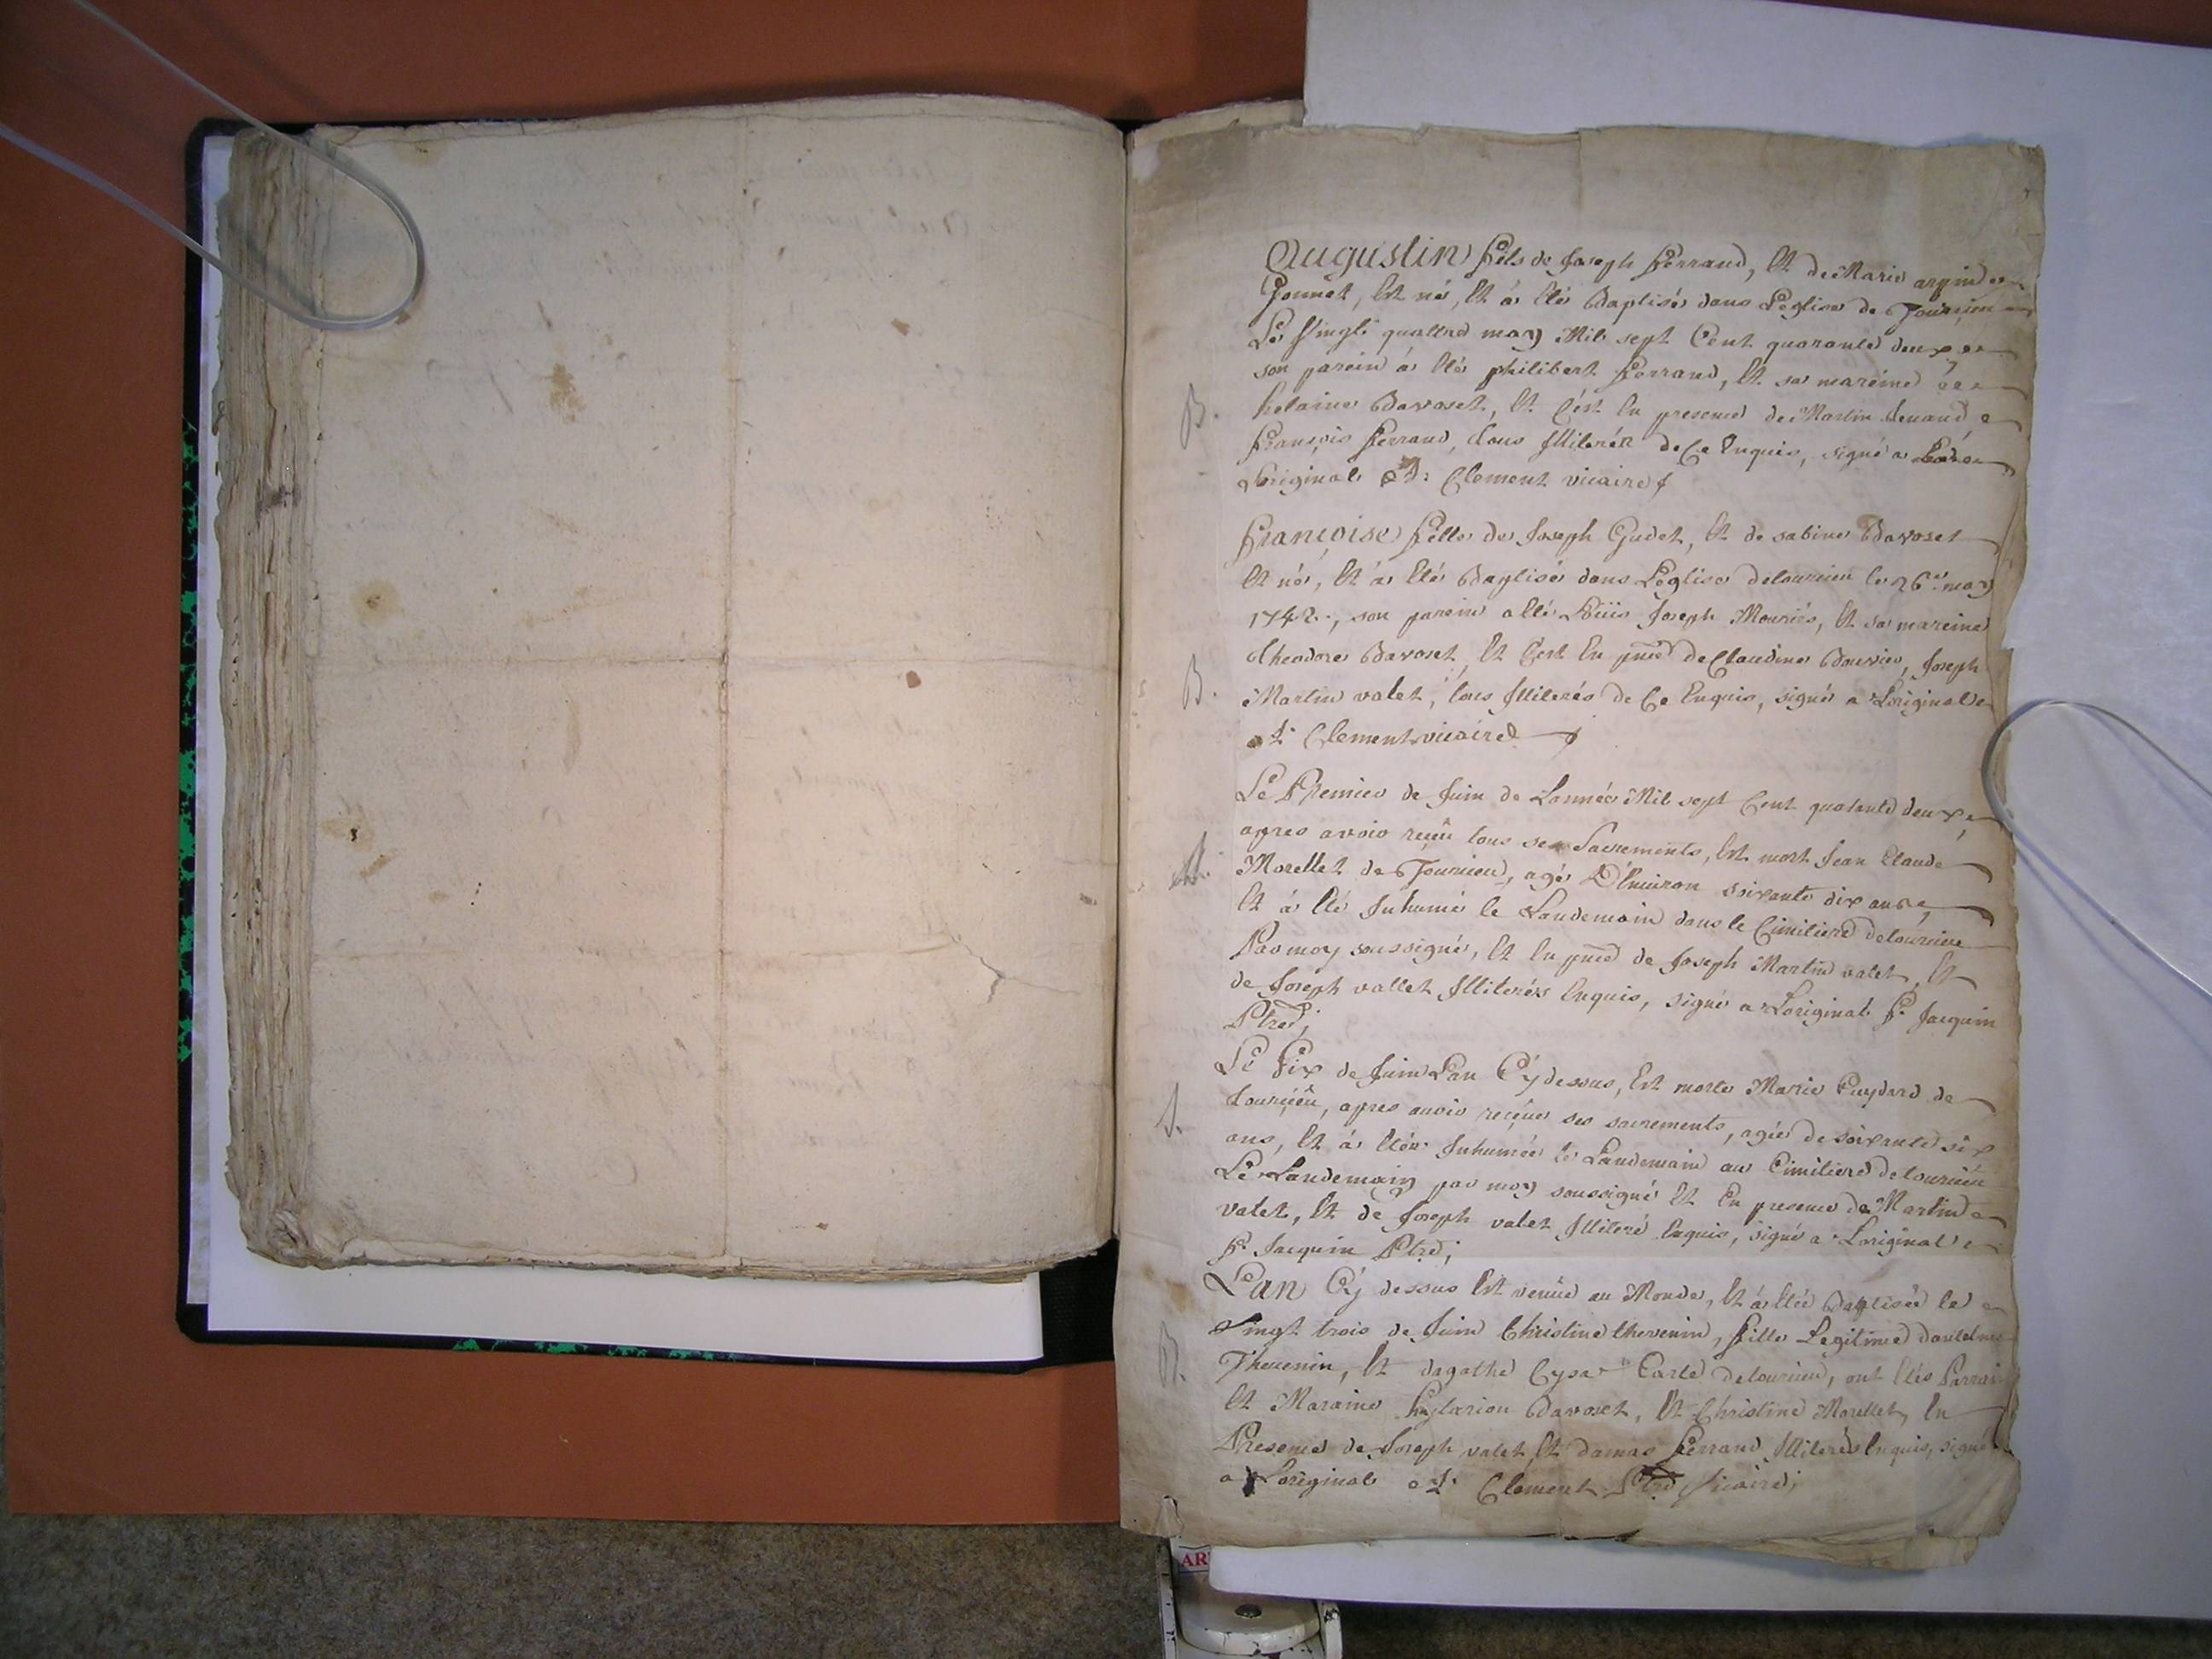 Augustin fils de Joseph ferrand, Et de Marie arpin
Jonnet, Est né, Et á Eté Baptisé dans L'eglise de Tourieu
Le Vingt quattre may Mil sept Cent quarante deux
son parein á Eté philibert ferrand, Et sa mareine
helaine Davoset, Et C'est En presence de Martin
B.
François ferrand, tous Illiterés de Ce Enquis, signé a
Loriginal Clement vicaire
françoise fille de Joseph Gudet, Et de sabine Davoset
Et né, Et á Eté Baptisé dans L'eglise de tourieu le 26e may
1742., son parein a Eté Loüis Joseph Mouriés, Et sa mareine
theodore Davoset, Et C'est En pnce de Claudine Bouvier, Joseph
B.
Martin valet, tous Illiterés de Ce Enquis, signé a Loriginal
Clement vicaire
Le Premier de Juin de Lannée Mil sept Cent quarante deux,
apres avoir reçeu tous ses Sacrements, Est mort Jean Claude
Morellet de Tourieu, agé D'Environ soixante dix ans,
Et á Eté Inhumé le Landemain dans le Cimitiere de tourieu
Par moy soussigné, Et En pnce de Joseph Martin valet, Et
de Joseph vallet Illiterés Enquis, signé a Loriginal f. Jacquin
Ptre;
Le Six de Juin Lan Cy dessus, Est morte Marie de
tourieu, apres avoir reçeue ses sacrements, agée de soixante six
S.
ans, Et á Etée Inhumée le Landemain au Cimitiere de tourieu
Le Landemain par moy soussigné Et En presence de Martin
valet, Et de Joseph valet Illiteré Enquis, signé a Loriginal
f. Jacquin Ptre;
Lan Cy dessus Est venüe au Monde, Et á Etée Baptisée le
Vingt trois de Juin Christine thevenin, fille Legitime
Thevenin, Et dagathe de tourieu, ont Etés Parrain
B.
Et Maraine hylarion Davoset, Et Christine Morellet, En
Presence de Joseph valet, Et damas ferrand Illiterés Enquis, signé
a Loriginal Clement Ptre Vicaire;
AR